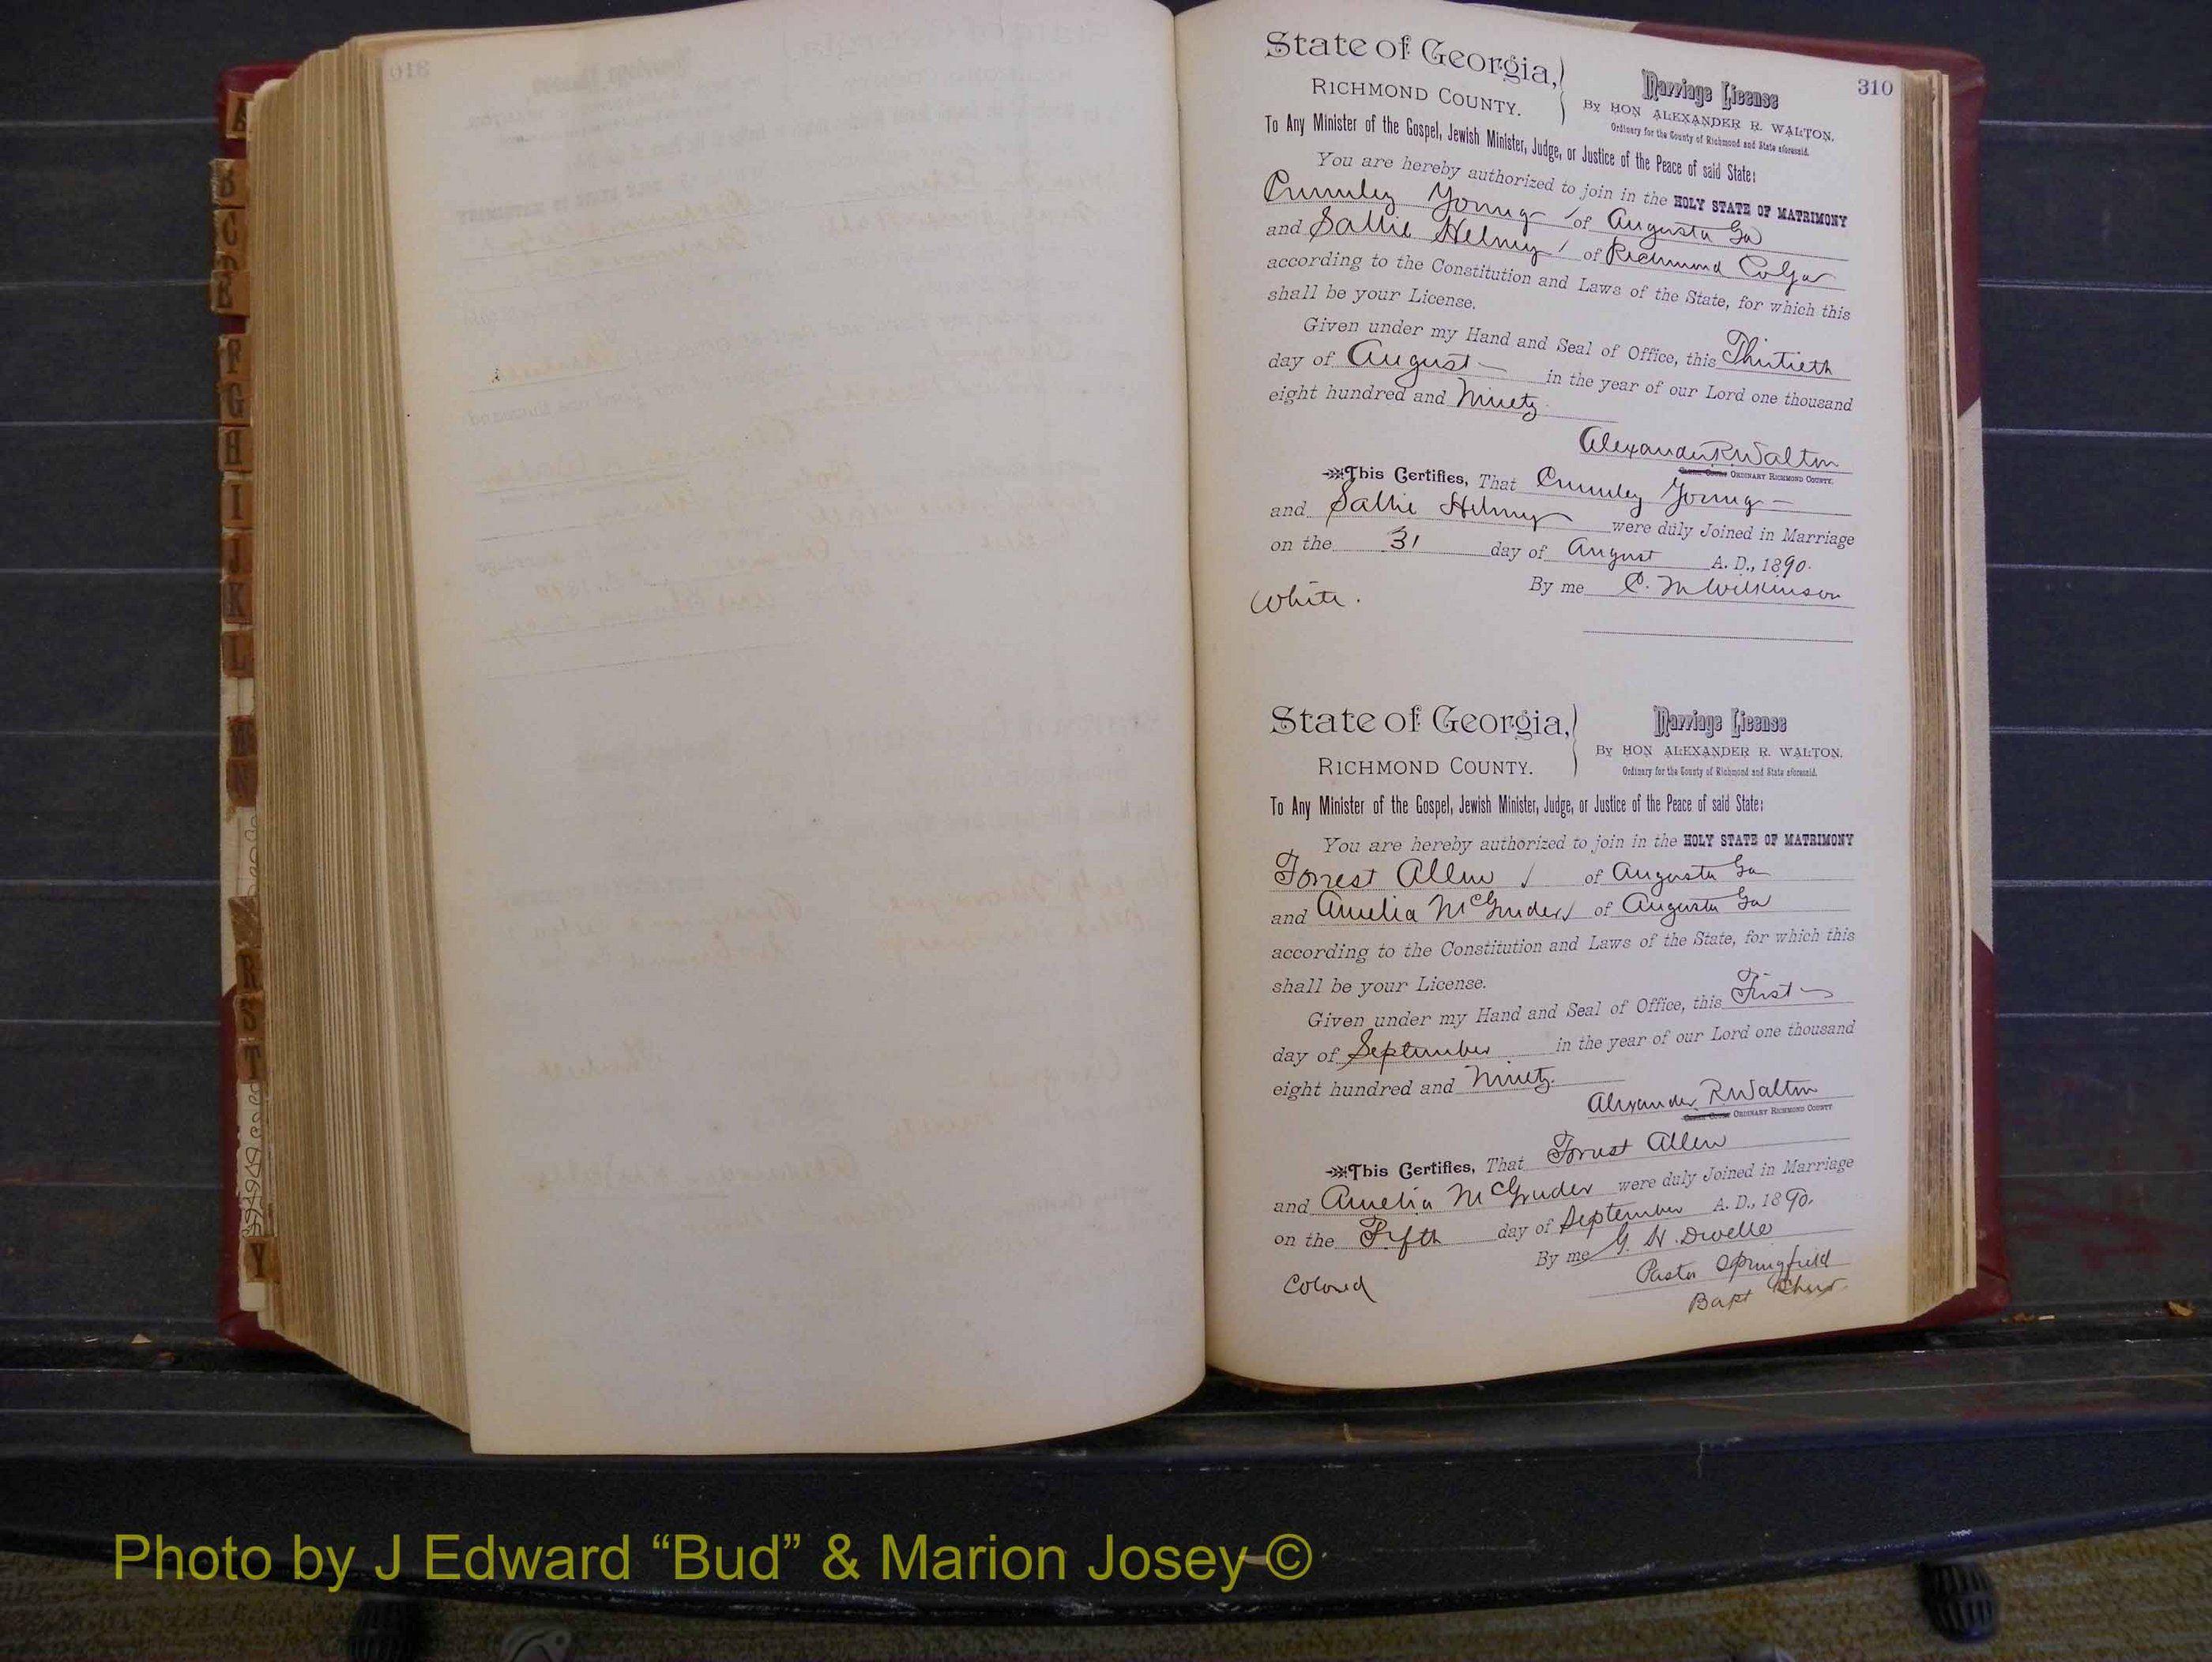 310
State of Georgia,
RICHMOND COUNTY.
Marriage License
By HON ALEXANDER R. WALTON,
Ordinary for the County of Richmond and State aforesaid.
To Any Minister of the Gospel, Jewish Minister, Judge, or Justice of the Peace of said State:
You are hereby authorized to join in the HOLY STATE OF MATRIMONY
Crumley Young of Augusta Ga
and Sallie Helmy of Richmond Co Ga
according to the Constitution and Laws of the State, for which this
shall be your License.
Given under my Hand and Seal of Office, this Thirtieth
day of August in the year of our Lord one thousand
eight hundred and Ninety
Alexander R Walton
ORDINARY RICHMOND COUNTY.
This Certifies, That Crumley Young
and Sallie Helmy were duly Joined in Marriage
on the 31 day of August A. D., 1890.
By me C. M Wilkinson
White.
State of Georgia,
RICHMOND COUNTY.
Marriage License
By HON ALEXANDER R. WALTON.
Ordinary for the County of Richmond and State aforesaid.
To Any Minister of the Gospel, Jewish Minister, Judge, or Justice of the Peace of said State:
You are hereby authorized to join in the HOLY STATE OF MATRIMONY
Forrest Allen of Augusta Ga
and Amelia McGruder of Augusta Ga
according to the Constitution and Laws of the State, for which this
shall be your License.
Given under my Hand and Seal of Office, this First
day of September in the year of our Lord one thousand
eight hundred and Ninety.
Alexander R Walton
ORDINARY RICHMOND COUNTY
This Certifies, That Forrest Allen
and Amelia McGruder were duly Joined in Marriage
on the Fifth day of September A. D., 1890.
By me G. H. Dwelle
Pastor Springfield
Bapt Chur.
Colored
A
B
C
F
G
H
I
J
K
L
N
R
S
T
Y
Photo by J Edward “Bud” & Marion Josey ©